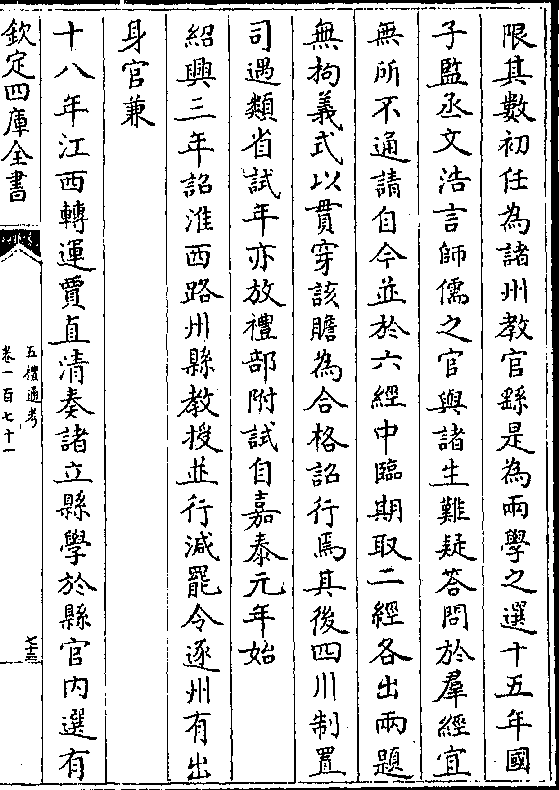 限其數初任為諸州教官繇是為兩學之選十五年國
子監丞文浩言師儒之官與諸生難疑答問於羣經宜
無所不通請自今並於六經中臨期取二經各出兩題
無拘義式以貫穿該贍為合格詔行焉其後四川制置
司遇類省試年亦放禮部附試自嘉泰元年始
紹興三年詔淮西路州縣教授並行減罷令逐州有出
身官兼
十八年江西轉運賈直清奏諸立縣學於縣官内選有
欽定四庫全書
五禮通考
卷一百七十一
七十三